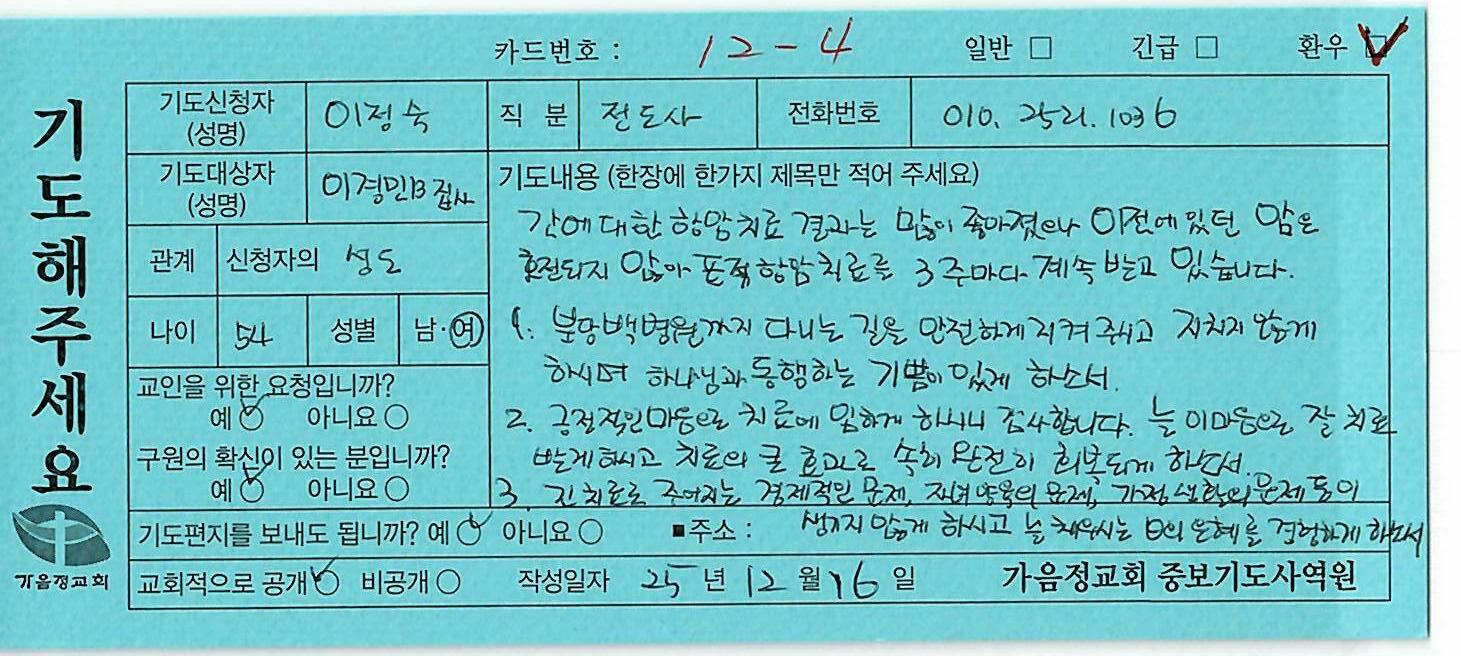 카드번호 : 12-4 일반 □ 긴급 □ 환우 ☑
기도해주세요
기도신청자 (성명) 이정숙 직 분 전도사 전화번호 010. 2521. 1036
기도대상자 (성명) 이경민B집사
관계 신청자의 성도
나이 54 성별 남·여
교인을 위한 요청입니까?
예 ✓ 아니요 ○
구원의 확신이 있는 분입니까?
예 ✓ 아니요 ○
기도내용 (한장에 한가지 제목만 적어 주세요)
간에 대한 항암치료 결과는 많이 좋아졌으나 이전에 있던 암은
호전되지 않아 표적항암치료를 3주마다 계속 받고 있습니다.
1. 분당백병원까지 다니는 길을 안전하게 지켜 주시고 지치지 않게
하시며 하나님과 동행하는 기쁨이 있게 하소서.
2. 긍정적인 마음으로 치료에 임하게 하시니 감사합니다. 늘 이마음으로 잘 치료
받게하시고 치료의 큰 효과로 속히 완전히 회복되게 하소서.
3. 긴 치료로 주어지는 경제적인 문제, 자녀양육의 문제, 가정생활의 문제 등이
생기지 않게 하시고 늘 채우시는 은혜를 경험하게 하소서
기도편지를 보내도 됩니까? 예 ✓ 아니요 ○ ■주소 :
교회적으로 공개 ✓ 비공개 ○ 작성일자 25 년 12 월 16 일 가음정교회 중보기도사역원
가음정교회